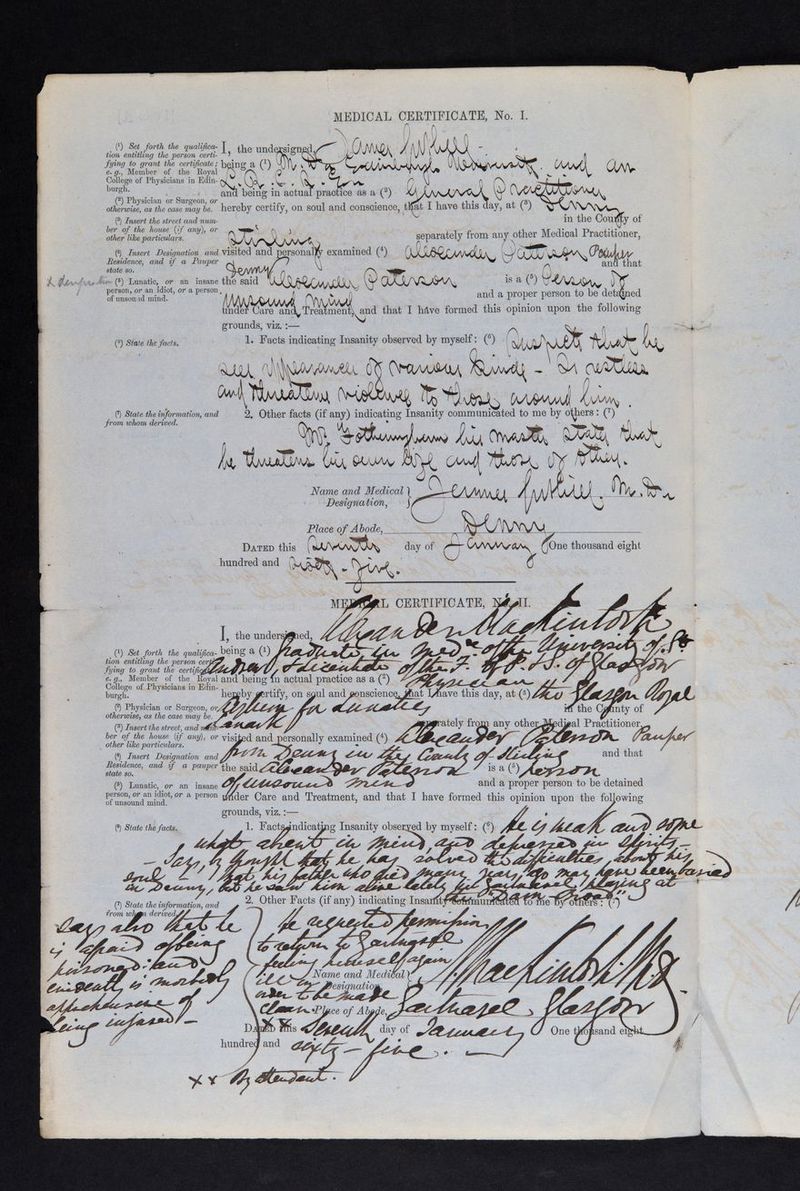 MEDICAL CERTIFICATE, No. I.
(¹) Set forth the qualification entitling the person certifying to grant the certificate; e. g., Member of the Royal College of Physicians in Edinburgh.
(²) Physician or Surgeon, or otherwise, as the case may be.
(³) Insert the street and number of the house (if any), or other like particulars.
(⁴) Insert Designation and Residence, and if a Pauper state so.
(⁵) Lunatic, or an insane person, or an idiot, or a person of unsound mind.
(⁶) State the facts.
(⁷) State the information, and from whom derived.
I, the undersigned,
being a (¹) M. D. Edinburgh University, and an
L. R. C. S. Edin
and being in actual practice as a (²) General Practitioner
hereby certify, on soul and conscience, that I have this day, at (³) Denny
in the County of
Stirling separately from any other Medical Practitioner,
visited and personally examined (⁴) Alexander Paterson Pauper
Denny and that
the said Alexander Paterson is a (⁵) Person of
Unsound Mind and a proper person to be detained
under Care and Treatment, and that I have formed this opinion upon the following
grounds, viz.:—
1. Facts indicating Insanity observed by myself: (⁶) Suspects that he
sees appearances of various kinds - Is restless
and threatens violence to those around him.
2. Other facts (if any) indicating Insanity communicated to me by others: (⁷)
Mr. Fotheringham his master states that
he threatens his own life and those of others.
Name and Medical Designation, M. D.
Place of Abode, Denny
DATED this Seventh day of January One thousand eight
hundred and sixty-five.
MEDICAL CERTIFICATE, No. II.
(¹) Set forth the qualification entitling the person certifying to grant the certificate; e. g., Member of the Royal College of Physicians in Edinburgh.
(²) Physician or Surgeon, or otherwise, as the case may be.
(³) Insert the street and number of the house (if any), or other like particulars.
(⁴) Insert Designation and Residence, and if a pauper state so.
(⁵) Lunatic, or an insane person, or an idiot, or a person of unsound mind.
(⁶) State the facts.
(⁷) State the information, and from whom derived.
I, the undersigned, Alexander Mackintosh
being a (¹) Graduate in med. of the University of St
Andrews & Licentiate of the F. of P. & S. of Glasgow
and being in actual practice as a (²) Physician
hereby certify, on soul and conscience, that I have this day, at (³) the Glasgow Royal
Asylum for Lunatics in the County of
Lanark separately from any other Medical Practitioner,
visited and personally examined (⁴) Alexander Paterson Pauper
from Denny in the County of Stirling and that
the said Alexander Paterson is a (⁵) person
of unsound mind and a proper person to be detained
under Care and Treatment, and that I have formed this opinion upon the following
grounds, viz.:—
1. Facts indicating Insanity observed by myself: (⁶) He is weak and some
what absent in mind, and depressed in spirits -
- Says, he thought that he has solved the difficulties about his
soul - that his father who died many years ago may have been buried
in Denny, but he saw him alive lately at Gartnavel, playing at
the "Dam Brod"
2. Other Facts (if any) indicating Insanity communicated to me by others: (⁷)
says also that he
is afraid of being
poisoned: and
evidently is morbidly
apprehensive of
being injured -
He requested permission
to return to Gartnavel
feeling himself again
ill in
order to be made
clean
Name and Medical Designation, A. Mackintosh M.D.
Place of Abode, Gartnavel, Glasgow
DATED this Seventh day of January One thousand eight
hundred and sixty-five.
x x By attendant.